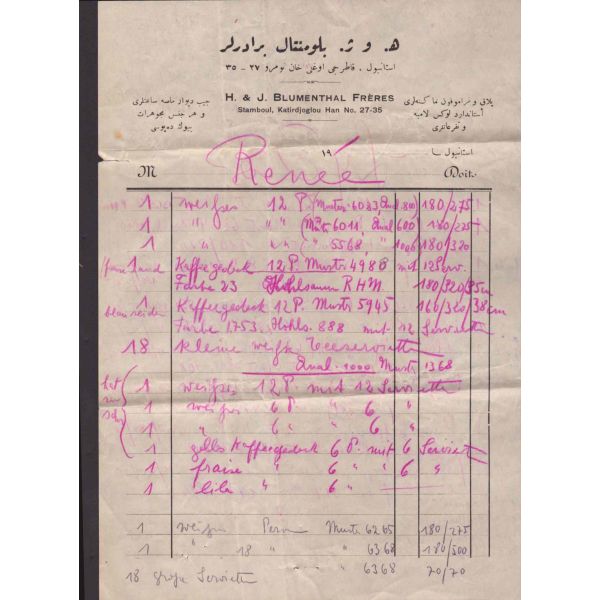 ه. و ژ. بلومنتال برادرلر
استانبول . قاطرجی اوغلی خان نومرو ٢٧ – ٣٥
H. & J. BLUMENTHAL FRÈRES
Stamboul, Katirdjoglou Han No. 27-35
جیب دیوار ماصه ساعتلری
و هر جنس مجوهرات
بیوك دەپوسی
پلاق و غراموفون ماكنه‌لری
استانبول ١٩
M Renée Doit:
1 weisses 12 P. Muster 6033 Qual. 800 180/275
1 " " " (Muster 6011, Qual 600) 180/275
1 " " " " 5568 1000 180/320
Kaffeegedeck 12 P. Muster 4980 mit 12 Serv.
1 Farbe 23 Hohlsaum R.H.M. 180/320/35cm
1 Kaffeegedeck 12 P. Muster 5945 160/320/38cm
Farbe 1753. Hohls. 888 mit 12 Servietten
18 kleine weisse Teeservietten
Qual. 1000 Muster 1368
1 weisses 12 P. mit 12 Servietten
1 weisses 6 P. " 6 "
1 " 6 " " 6 "
1 gelbes Kaffeegedeck 6 P. mit 6 Servietten
1 fraise " 6 " " 6 "
1 lila " 6 "
1 weisses Person Muster 6265 180/275
1 " 18 " " 6368 180/500
18 grosse Servietten " 6368 70/70